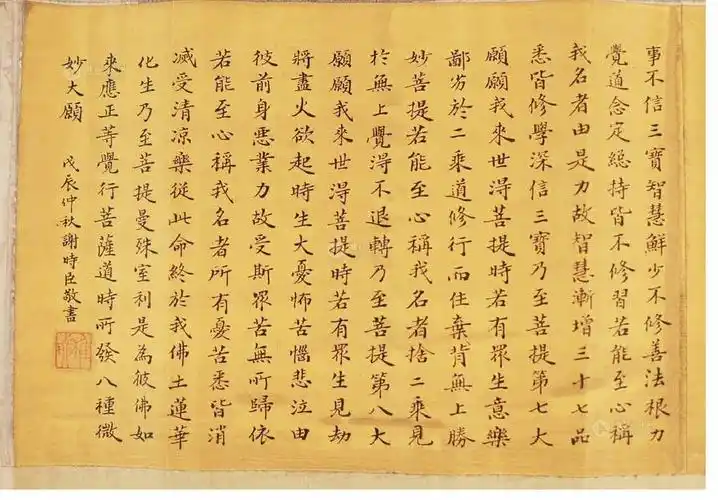 事不信三寶智慧鮮少不修善法根力
覺道念定總持皆不修習若能至心稱
我名者由是力故智慧漸增三十七品
悉皆修學深信三寶乃至菩提第七大
願願我來世得菩提時若有眾生意樂
鄙劣於二乘道修行而住棄背無上勝
妙菩提若能至心稱我名者捨二乘見
於無上覺得不退轉乃至菩提第八大
願願我來世得菩提時若有眾生見劫
將盡火欲起時生大憂怖苦惱悲泣由
彼前身惡業力故受斯眾苦無所歸依
若能至心稱我名者所有憂苦悉皆消
滅受清涼樂從此命終於我佛土蓮華
化生乃至菩提曼殊室利是為彼佛如
來應正等覺行菩薩道時所發八種微
妙大願 戊辰仲秋謝時臣敬書